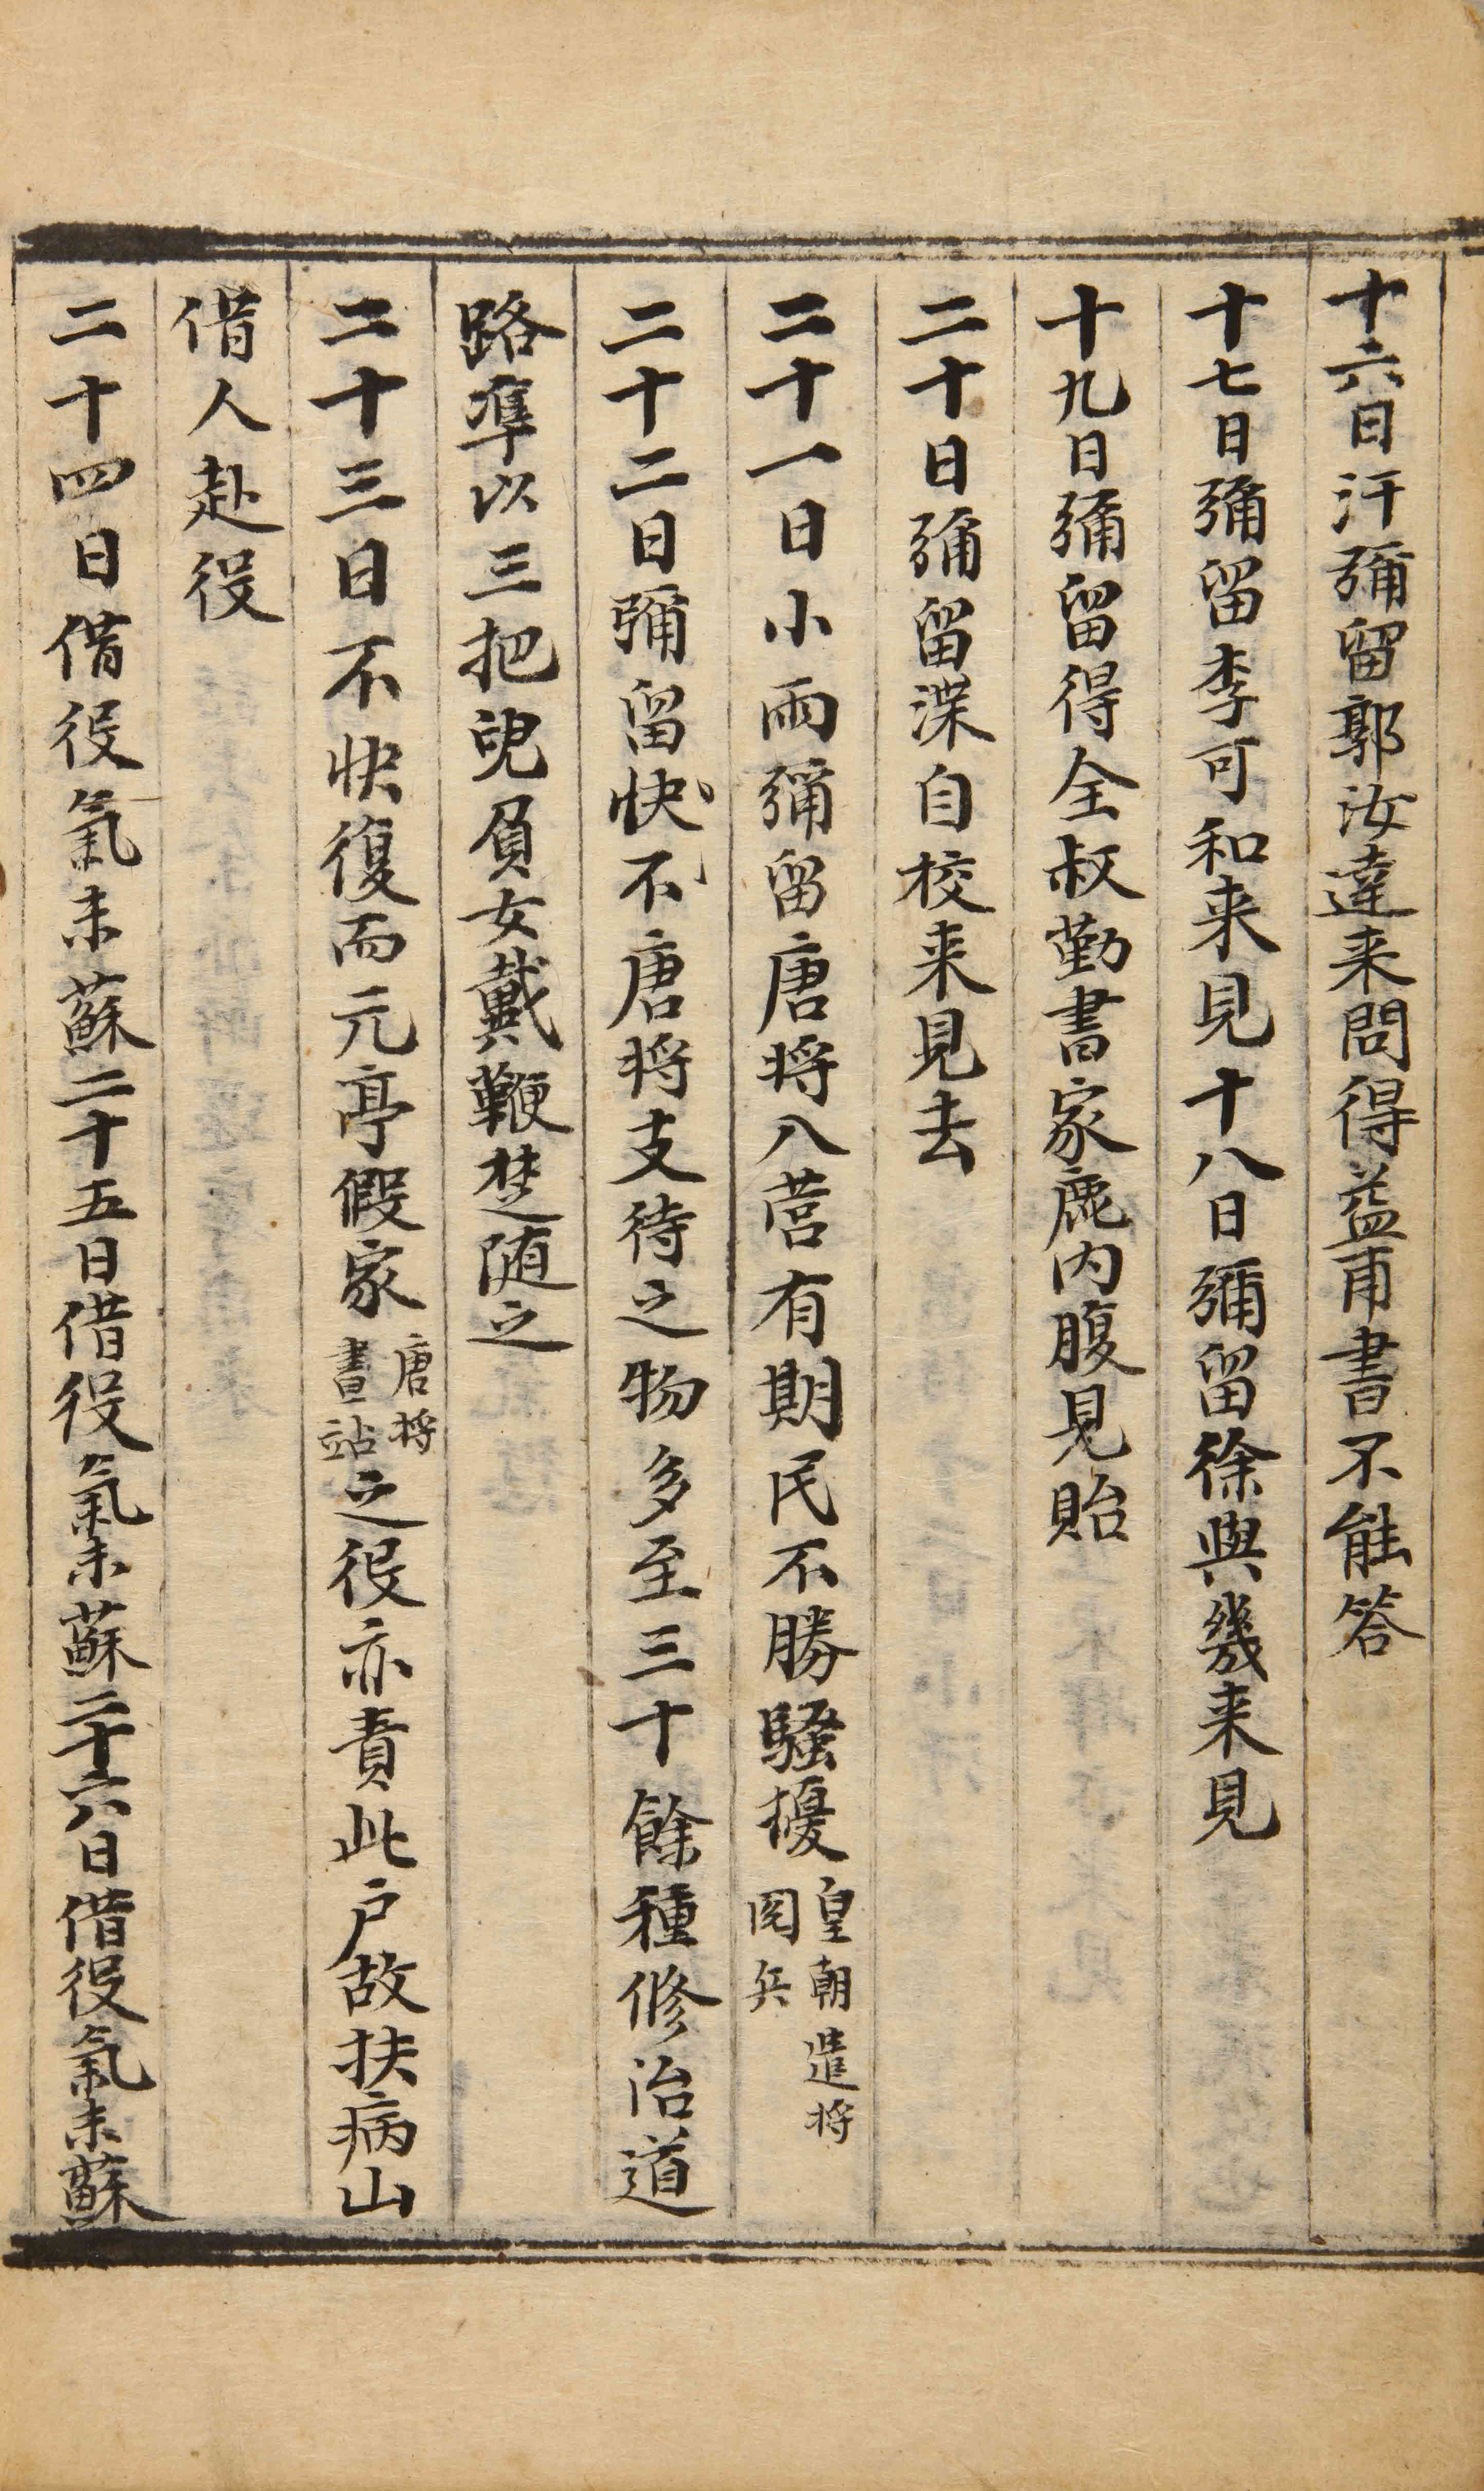 十六日汗彌留郭汝達来問得益甫書不能答
十七日彌留李可和来見十八日彌留徐興幾来見
十九日彌留得全叔勤書家鹿内腹見貽
二十日彌留渫自校来見去
二十一日小雨彌留唐将入莒有期民不勝騷擾皇朝遣将
囘兵
二十二日彌留快不唐将支待之物多至三十餘種修治道
路準以三把皃負女戴鞭楚随之
二十三日不快復而元亭假家唐将
晝站之役亦責此户故扶病山
借人赴役
二十四日借役氣未蘇二十五日借役氣未蘇二十六日借役氣未蘇